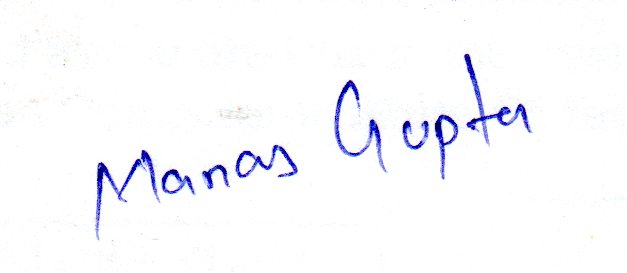 Manas Gupta